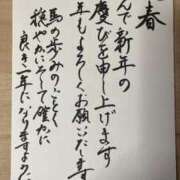 春
んで新年の
慶びを申し上げます
年もよろしくお願いいたします
馬の歩みのごとく
穏やかにそして確かに
良き一年になりますよう